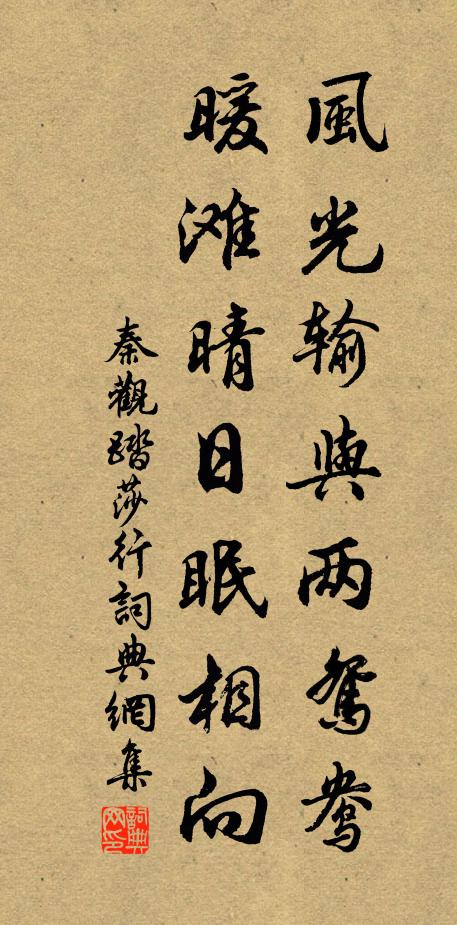 風光输與两鴛鴦
暖滩晴日眠相向
秦觀踏莎行詞典網集
詞典网印